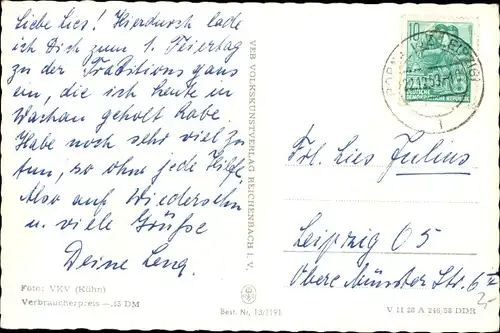 Liebe Lies! Hierdurch lade
ich Dich zum 1. Feiertag
zu der Traditionsgans
ein, die ich heute in
Wachau geholt habe.
Habe noch sehr viel zu
tun, so ohne jede Hilfe.
Also auf Wiedersehn
u. viele Grüße
Deine
Foto: VKV (Kühn)
Verbraucherpreis —,15 DM
VEB VOLKSKUNSTVERLAG REICHENBACH I. V.
Best. Nr. 13/1191
10
DEUTSCHE
DEMOKRATISCHE REPUBLIK
Frl. Lies Julius
Leipzig O5
Obere Münster Str. 6
V 11 28 A 246/58 DDR